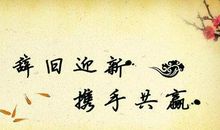 辞旧迎新
携手共赢